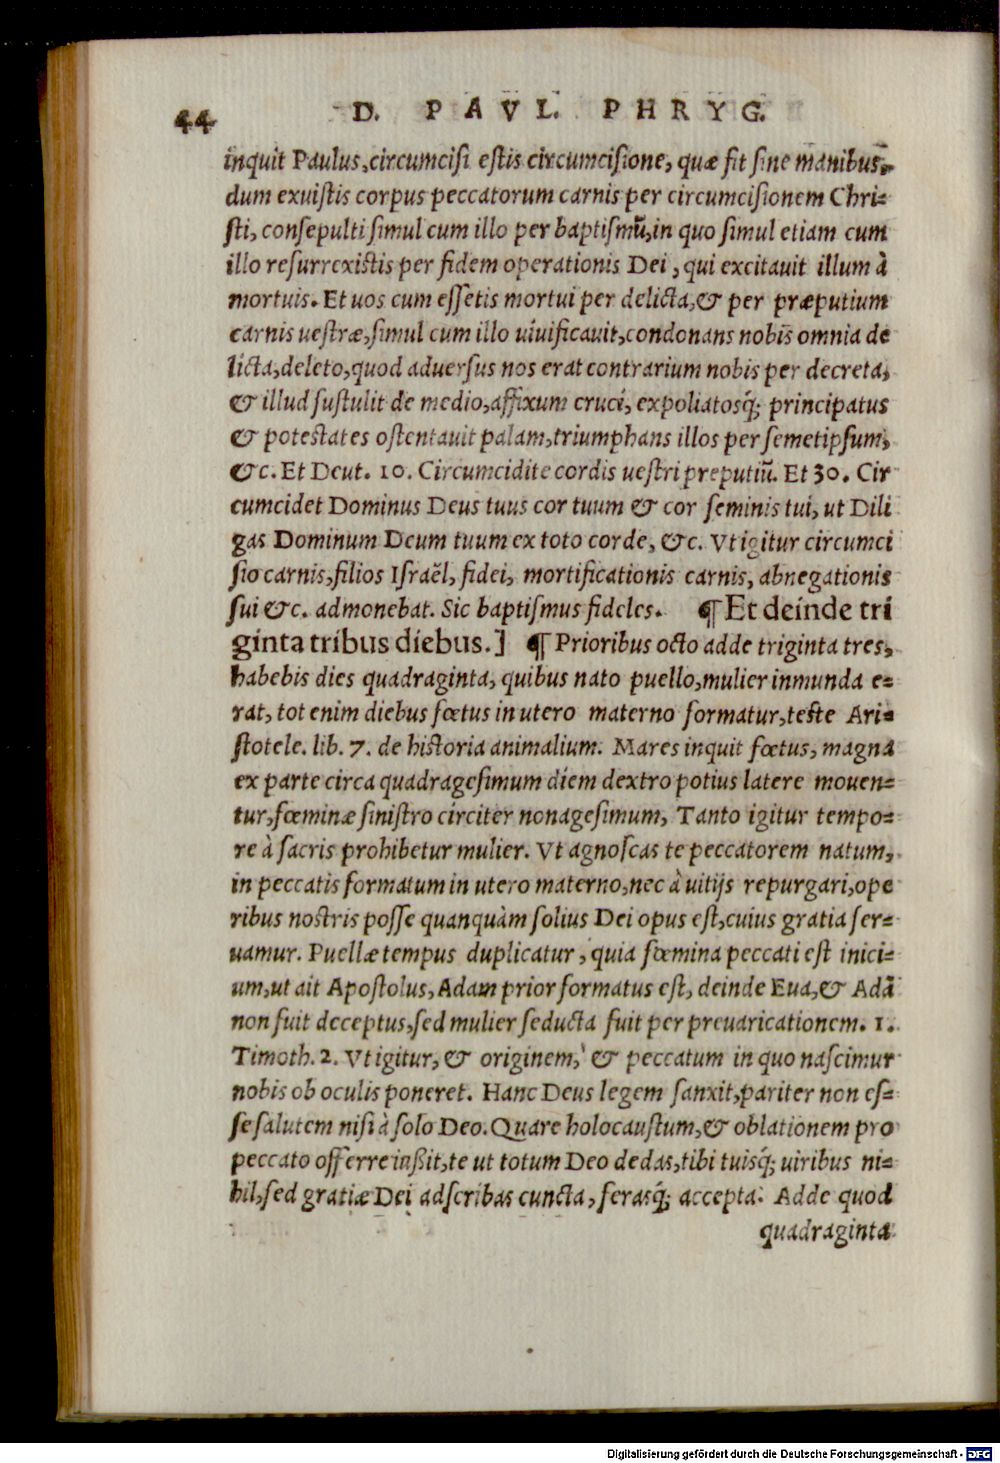 44 D. PAVL. PHRYG.
inquit Paulus, circumcisi estis circumcisione, quæ fit sine manibus,
dum exuistis corpus peccatorum carnis per circumcisionem Chri-
sti, consepulti simul cum illo per baptismū, in quo simul etiam cum
illo resurrexistis per fidem operationis Dei, qui excitauit illum à
mortuis. Et uos cum essetis mortui per delicta, & per præputium
carnis uestræ, simul cum illo uiuificauit, condonans nobis omnia de
licta, deleto, quod aduersus nos erat contrarium nobis per decreta,
& illud sustulit de medio, affixum cruci, expoliatosq; principatus
& potestates ostentauit palam, triumphans illos per semetipsum,
&c. Et Deut. 10. Circumcidite cordis uestri preputiū. Et 30. Cir
cumcidet Dominus Deus tuus cor tuum & cor seminis tui, ut Dili
gas Dominum Deum tuum ex toto corde, &c. Vt igitur circumci
sio carnis, filios Israël, fidei, mortificationis carnis, abnegationis
sui &c. admonebat. Sic baptismus fideles. ¶ Et deinde tri
ginta tribus diebus.] ¶ Prioribus octo adde triginta tres,
habebis dies quadraginta, quibus nato puello, mulier inmunda e-
rat, tot enim diebus fœtus in utero materno formatur, teste Ari-
stotele. lib. 7. de historia animalium. Mares inquit fœtus, magna
ex parte circa quadragesimum diem dextro potius latere mouen-
tur, fœminæ sinistro circiter nonagesimum, Tanto igitur tempo-
re à sacris prohibetur mulier. Vt agnoscas te peccatorem natum,
in peccatis formatum in utero materno, nec à uitijs repurgari, ope
ribus nostris posse quanquàm solius Dei opus est, cuius gratia ser-
uamur. Puellæ tempus duplicatur, quia fœmina peccati est inici-
um, ut ait Apostolus, Adam prior formatus est, deinde Eua, & Adā
non fuit deceptus, sed mulier seducta fuit per preuaricationem. 1.
Timoth. 2. Vt igitur, & originem, & peccatum in quo nascimur
nobis ob oculis poneret. Hanc Deus legem sanxit, pariter non es-
se salutem nisi à solo Deo. Quare holocaustum, & oblationem pro
peccato offerre iußit, te ut totum Deo dedas, tibi tuisq; uiribus ni-
hil, sed gratiæ Dei adscribas cuncta, ferasq; accepta. Adde quod
quadraginta
Digitalisierung gefördert durch die Deutsche Forschungsgemeinschaft - DFG